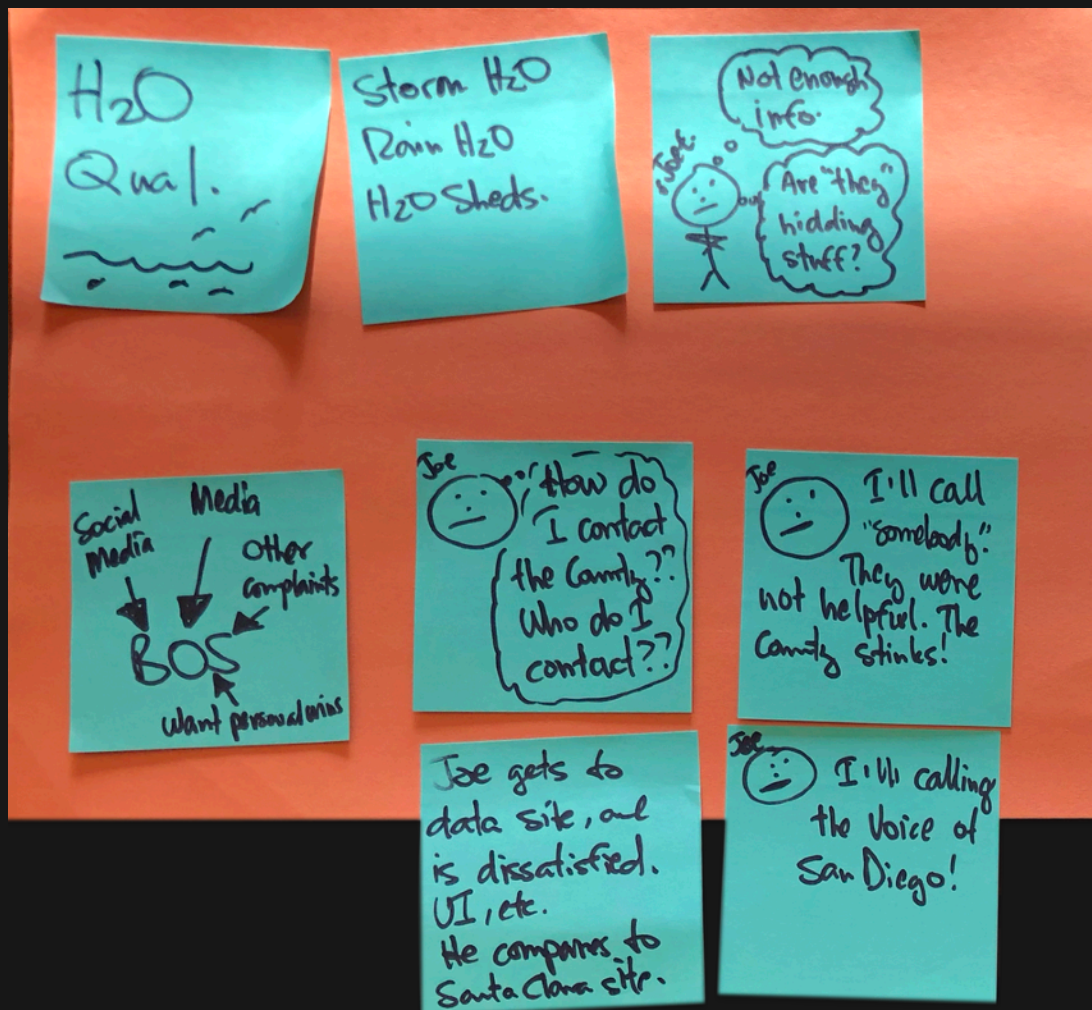 H₂O
Qual.
Storm H₂O
Rain H₂O
H₂O Sheds.
Not enough
info.
"Joe".
Are "they"
hidding
stuff?
Social
Media
Media
Other
complaints
BOS
Want personal wins
Joe
"How do
I contact
the County??
Who do I
contact??
Joe
I'll call
"somebody."
They were
not helpful. The
County stinks!
Joe gets to
data site, and
is dissatisfied.
UI, etc.
He compares to
Santa Clara site.
Joe
calling
the Voice of
San Diego!